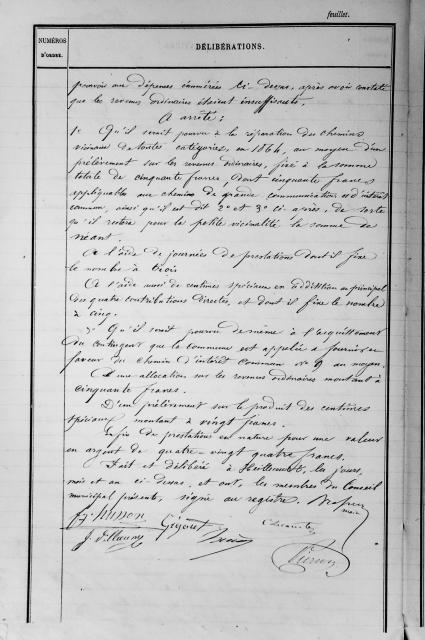 feuillet.
NUMÉROS
D'ORDRE.
DÉLIBÉRATIONS.
pourvoir aux dépenses énumérées ci-dessus, après avoir constaté
que les revenus ordinaires étaient insuffisants.
A arrêté :
1° Qu'il serait pourvu à la réparation des chemins
vicinaux de toutes catégories, en 1864, au moyen d'un
prélèvement sur les revenus ordinaires, fixé à la somme
totale de cinquante francs, dont cinquante francs
applicables aux chemins de grande communication et d'intérêt
commun, ainsi qu'il est dit 2° et 3° ci-après, de sorte
qu'il restera pour la petite vicinalité la somme de
néant.
A l'aide de journées de prestations dont il fixe
le nombre à trois
A l'aide aussi de centimes spéciaux en addition au principal
des quatre contributions directes, et dont il fixe le nombre
à cinq.
3° Qu'il serait pourvu de même à l'acquittement
du contingent que la commune est appelée à fournir en
faveur du chemin d'intérêt Commun No 9 au moyen.
D'une allocation sur les revenus ordinaires montant à
cinquante francs.
D'un prélèvement sur le produit des centimes
spéciaux montant à vingt francs.
Enfin de prestations en nature pour une valeur
en argent de quatre-vingt quatre francs.
Fait et délibéré à les jours,
mois et an ci-dessus, et ont, les membres du Conseil
municipal présents, signé au registre.
maire